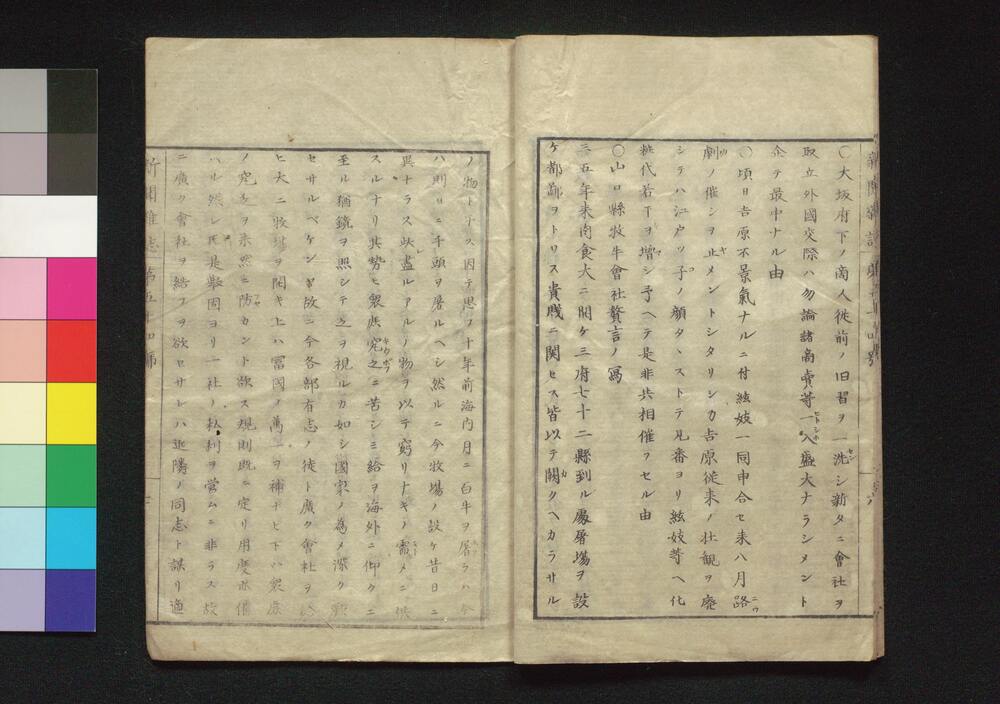 〇大坂府下ノ商人従前ノ旧習ヲ一洗シ新タニ會社ヲ
取立外國交際ハ勿論諸商賣等一入盛大ナラシメント
企テ最中ナル由
〇頃日吉原不景氣ナルニ付絃妓一同申合セ来八月路
劇ノ催シヲ止メントシタリシカ吉原従来ノ壮観ヲ廢
シテハ江戸ツ子ノ顔タヽストテ見番ヨリ絃妓等ヘ化
粧代若干ヲ増シ予ヘテ是非共相催フセル由
〇山口縣牧牛會社贅言ノ寫
三五年来肉食大ニ開ケ三府七十二縣到ル處屠場ヲ設
ケ都鄙ヲトワス貴賤ニ関セス皆以テ闕クヘカラサル
ノ物トナス因テ思フ十年前海内月ニ百牛ヲ屠ラハ今
ハ則日ニ千頭ヲ屠ルヘシ然ルニ今牧場ノ設ケ昔日ニ
異ナラス此盡ルアルノ物ヲ以テ窮リナキノ需メニ供
スルナリ其勢ヒ衆庶究乏ニ苦シミ給ヲ海外ニ仰クニ
至ル猶鏡ヲ照シテ之ヲ視ルカ如シ國家ノ為メ深ク
セサルベケンヤ故ニ今各部有志ノ徒ト廣ク會社ヲ
ヒ大ニ牧場ヲ開キ上ハ冨國ノ萬一ヲ補ナヒ下ハ衆庶
ノ究乏ヲ未然ニ防カント欲ス規則既ニ定リ用度亦備
ハル然レ𪜈是鄙固ヨリ一社ノ私利ヲ営ムニ非ラス故
ニ廣ク會社ヲ結フヲ欲セサレハ近隣ノ同志ト謀リ適
新聞雑誌 第五十四號